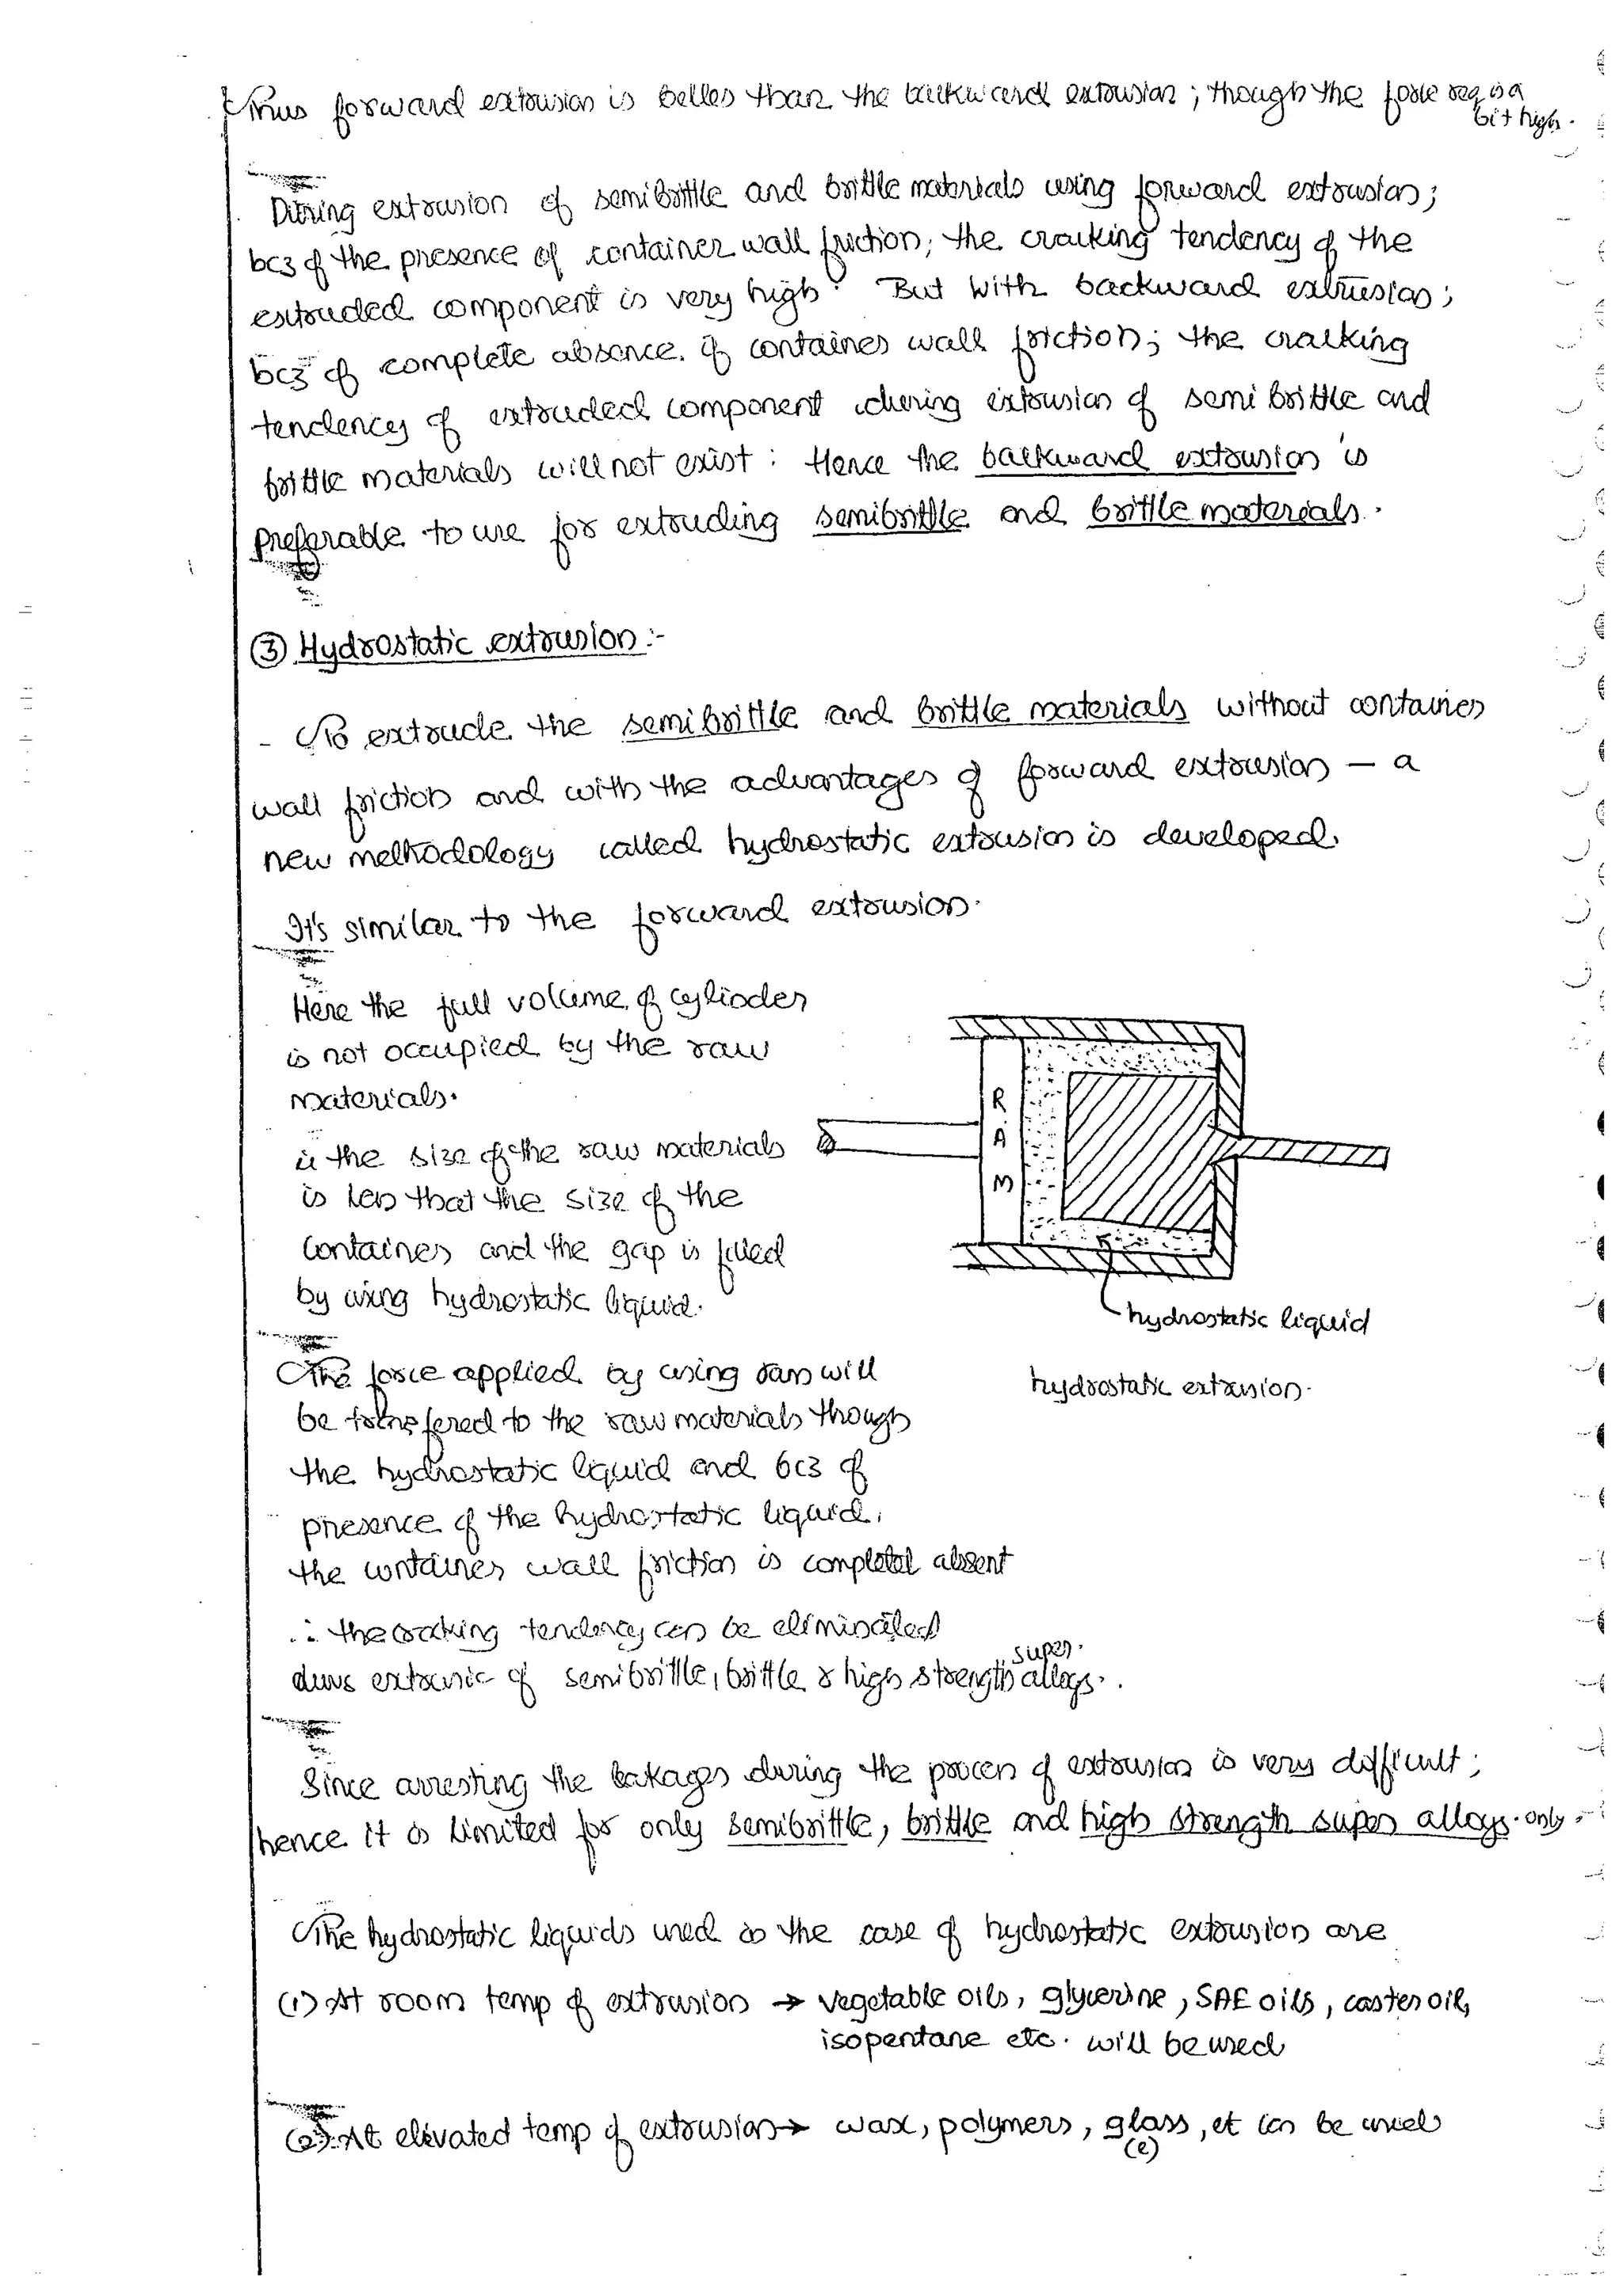 Thus forward extrusion is better than the backward extrusion; though the force req is a
bit high.
During extrusion of semibrittle and brittle materials using forward extrusion;
bcz of the presence of container wall friction; the cracking tendency of the
extruded component is very high. But with backward extrusion;
bcz of complete absence of container wall friction; the cracking
tendency of extruded component during extrusion of semi brittle and
brittle materials will not exist: Hence the backward extrusion is
preferable to use for extruding semibrittle and brittle materials.
③ Hydrostatic extrusion:-
- To extrude the semibrittle and brittle materials without container
wall friction and with the advantages of forward extrusion — a
new methodology called hydrostatic extrusion is developed.
It's similar to the forward extrusion.
Here the full volume of cylinder
is not occupied by the raw
materials.
ie the size of the raw materials
is less that the size of the
container and the gap is filled
by using hydrostatic liquid.
RAM
hydrostatic liquid
hydrostatic extrusion.
The force applied by using ram will
be transfered to the raw materials though
the hydrostatic liquid and bcz of
presence of the hydrostatic liquid,
the container wall friction is completel absent
∴ the cracking tendency can be eliminated
super
extrusic of semibrittle, brittle & high strength alloys.
Since arresting the leakages during the process of extrusion is very difficult;
hence it is limited for only semibrittle, brittle and high strength super alloys. only.
The hydrostatic liquids used in the case of hydrostatic extrusion are
(1) At room temp of extrusion → vegetable oils, glycerine, SAE oils, caster oil,
isopentane etc. will be used
(2) At elevated temp of extrusion → wax, polymers, glass, et can be used
(e)